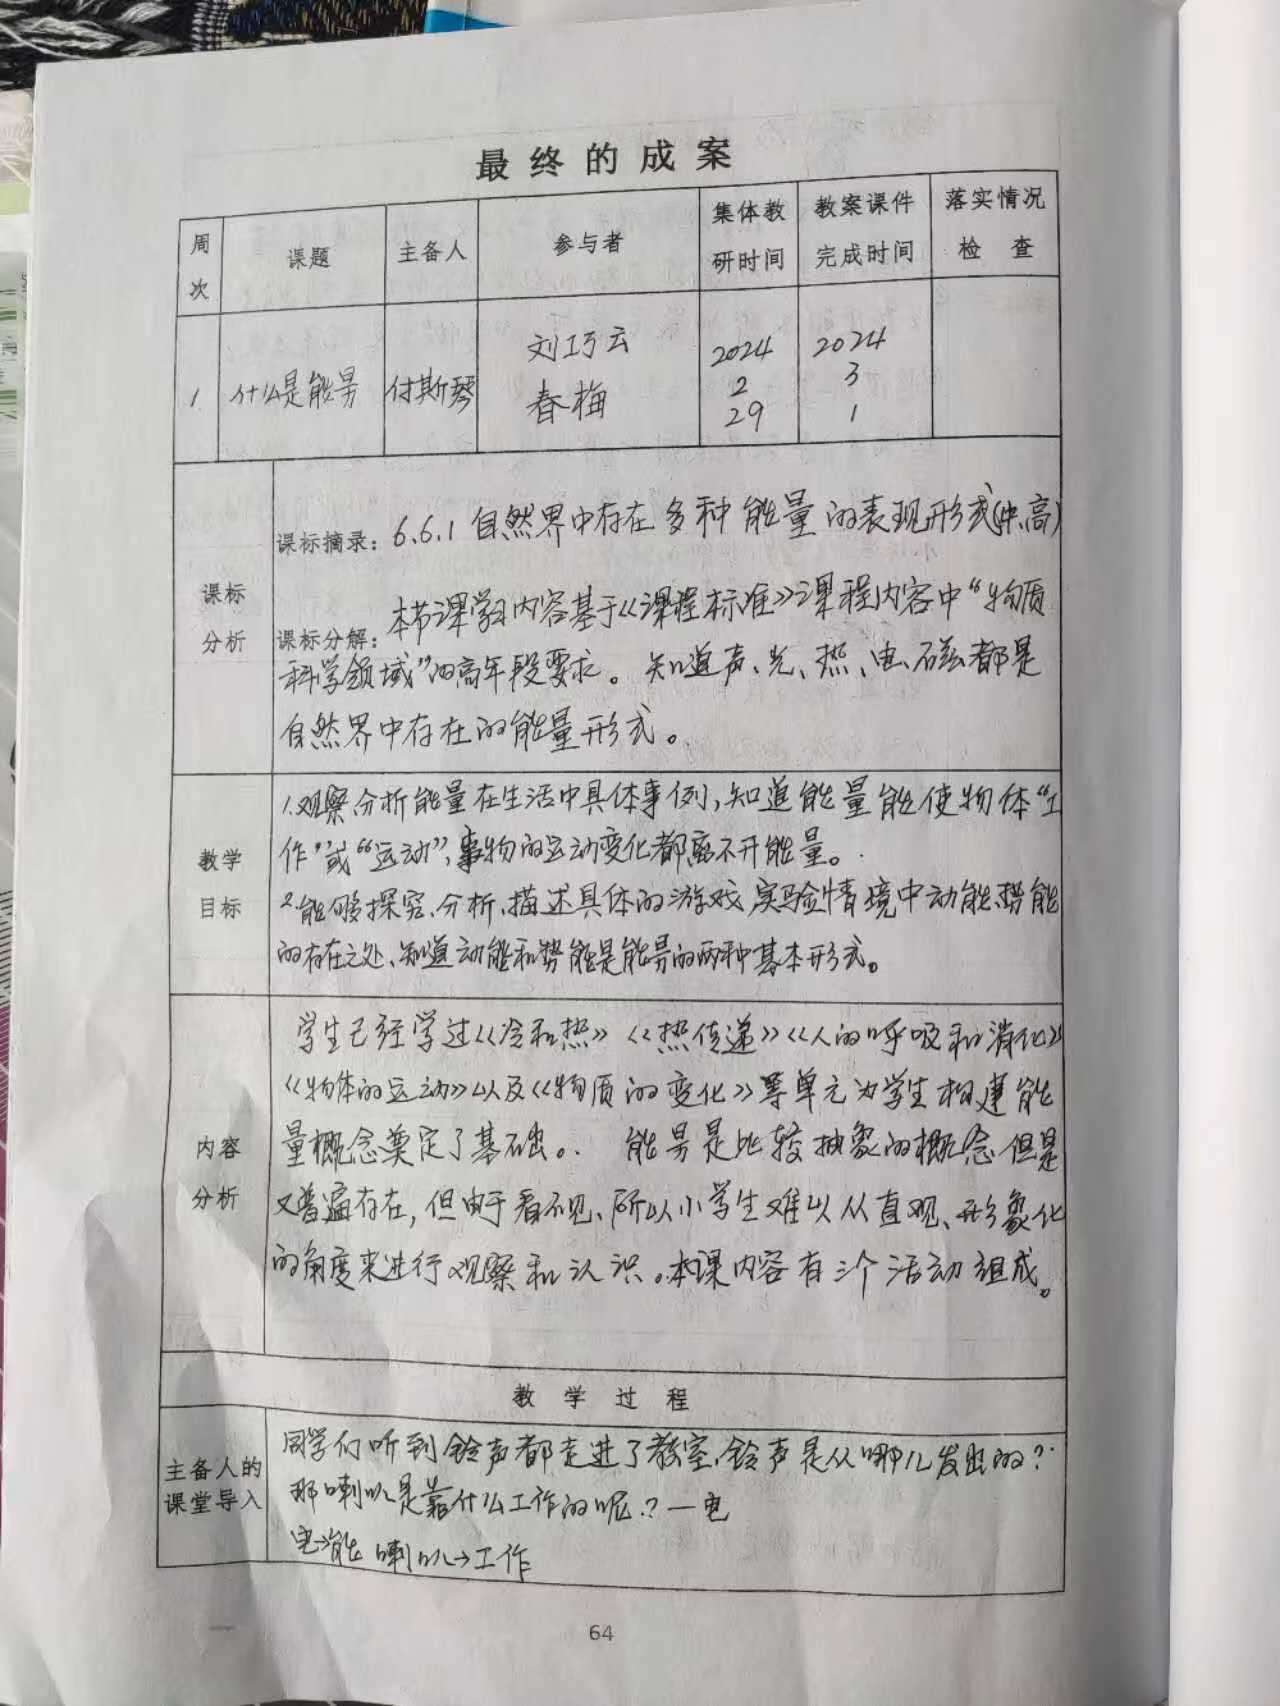 最终的成案
周次 课题 主备人 参与者 集体教研时间 教案课件完成时间 落实情况检查
1 什么是能量 付斯琴 刘巧云 春梅 2024 2 29 2024 3 1
课标分析
课标摘录：6.6.1 自然界中存在多种能量的表现形式(中、高)
课标分解：本节课学习内容基于《课程标准》课程内容中“物质
科学领域”的高年段要求。知道声、光、热、电、磁都是
自然界中存在的能量形式。
教学目标
1.观察分析能量在生活中具体事例，知道能量能使物体“工
作”或“运动”，事物的运动变化都离不开能量。
2.能够探究、分析、描述具体的游戏、实验情境中动能、势能
的存在之处、知道动能和势能是能量的两种基本形式。
内容分析
学生已经学过《冷和热》《热传递》《人的呼吸和消化》
《物体的运动》以及《物质的变化》等单元为学生构建能
量概念奠定了基础。. 能量是比较抽象的概念但是
又普遍存在，但由于看不见、所以小学生难以从直观、形象化
的角度来进行观察和认识。本课内容有三个活动组成。
教学过程
主备人的课堂导入
同学们听到铃声都走进了教室，铃声是从哪儿发出的？
那喇叭是靠什么工作的呢？—电
电→能 喇叭→工作
64